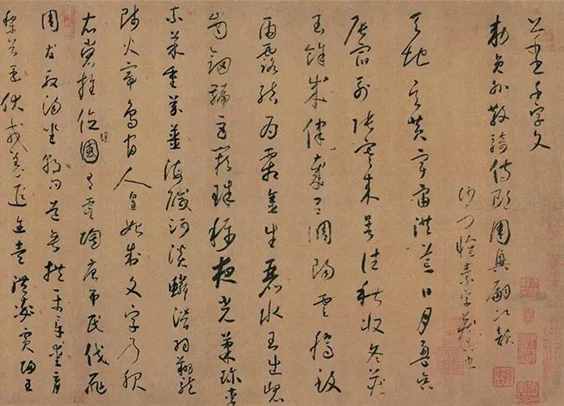 敕員外散騎侍郎周興嗣次韻
沙門懷素字藏真
天地玄黃宇宙洪荒日月盈昃
辰宿列張寒來暑往秋收冬藏
閏餘成歲律呂調陽雲騰致
雨露結為霜金生麗水玉出崑
崗劍號巨闕珠稱夜光菓珍李
柰菜重芥薑海鹹河淡鱗潛羽翔龍
師火帝鳥官人皇始制文字乃服
衣裳推位讓國有虞陶唐弔民伐罪
周發殷湯坐朝問道垂拱平章愛育
黎首臣伏戎羌遐邇壹體率賓歸王